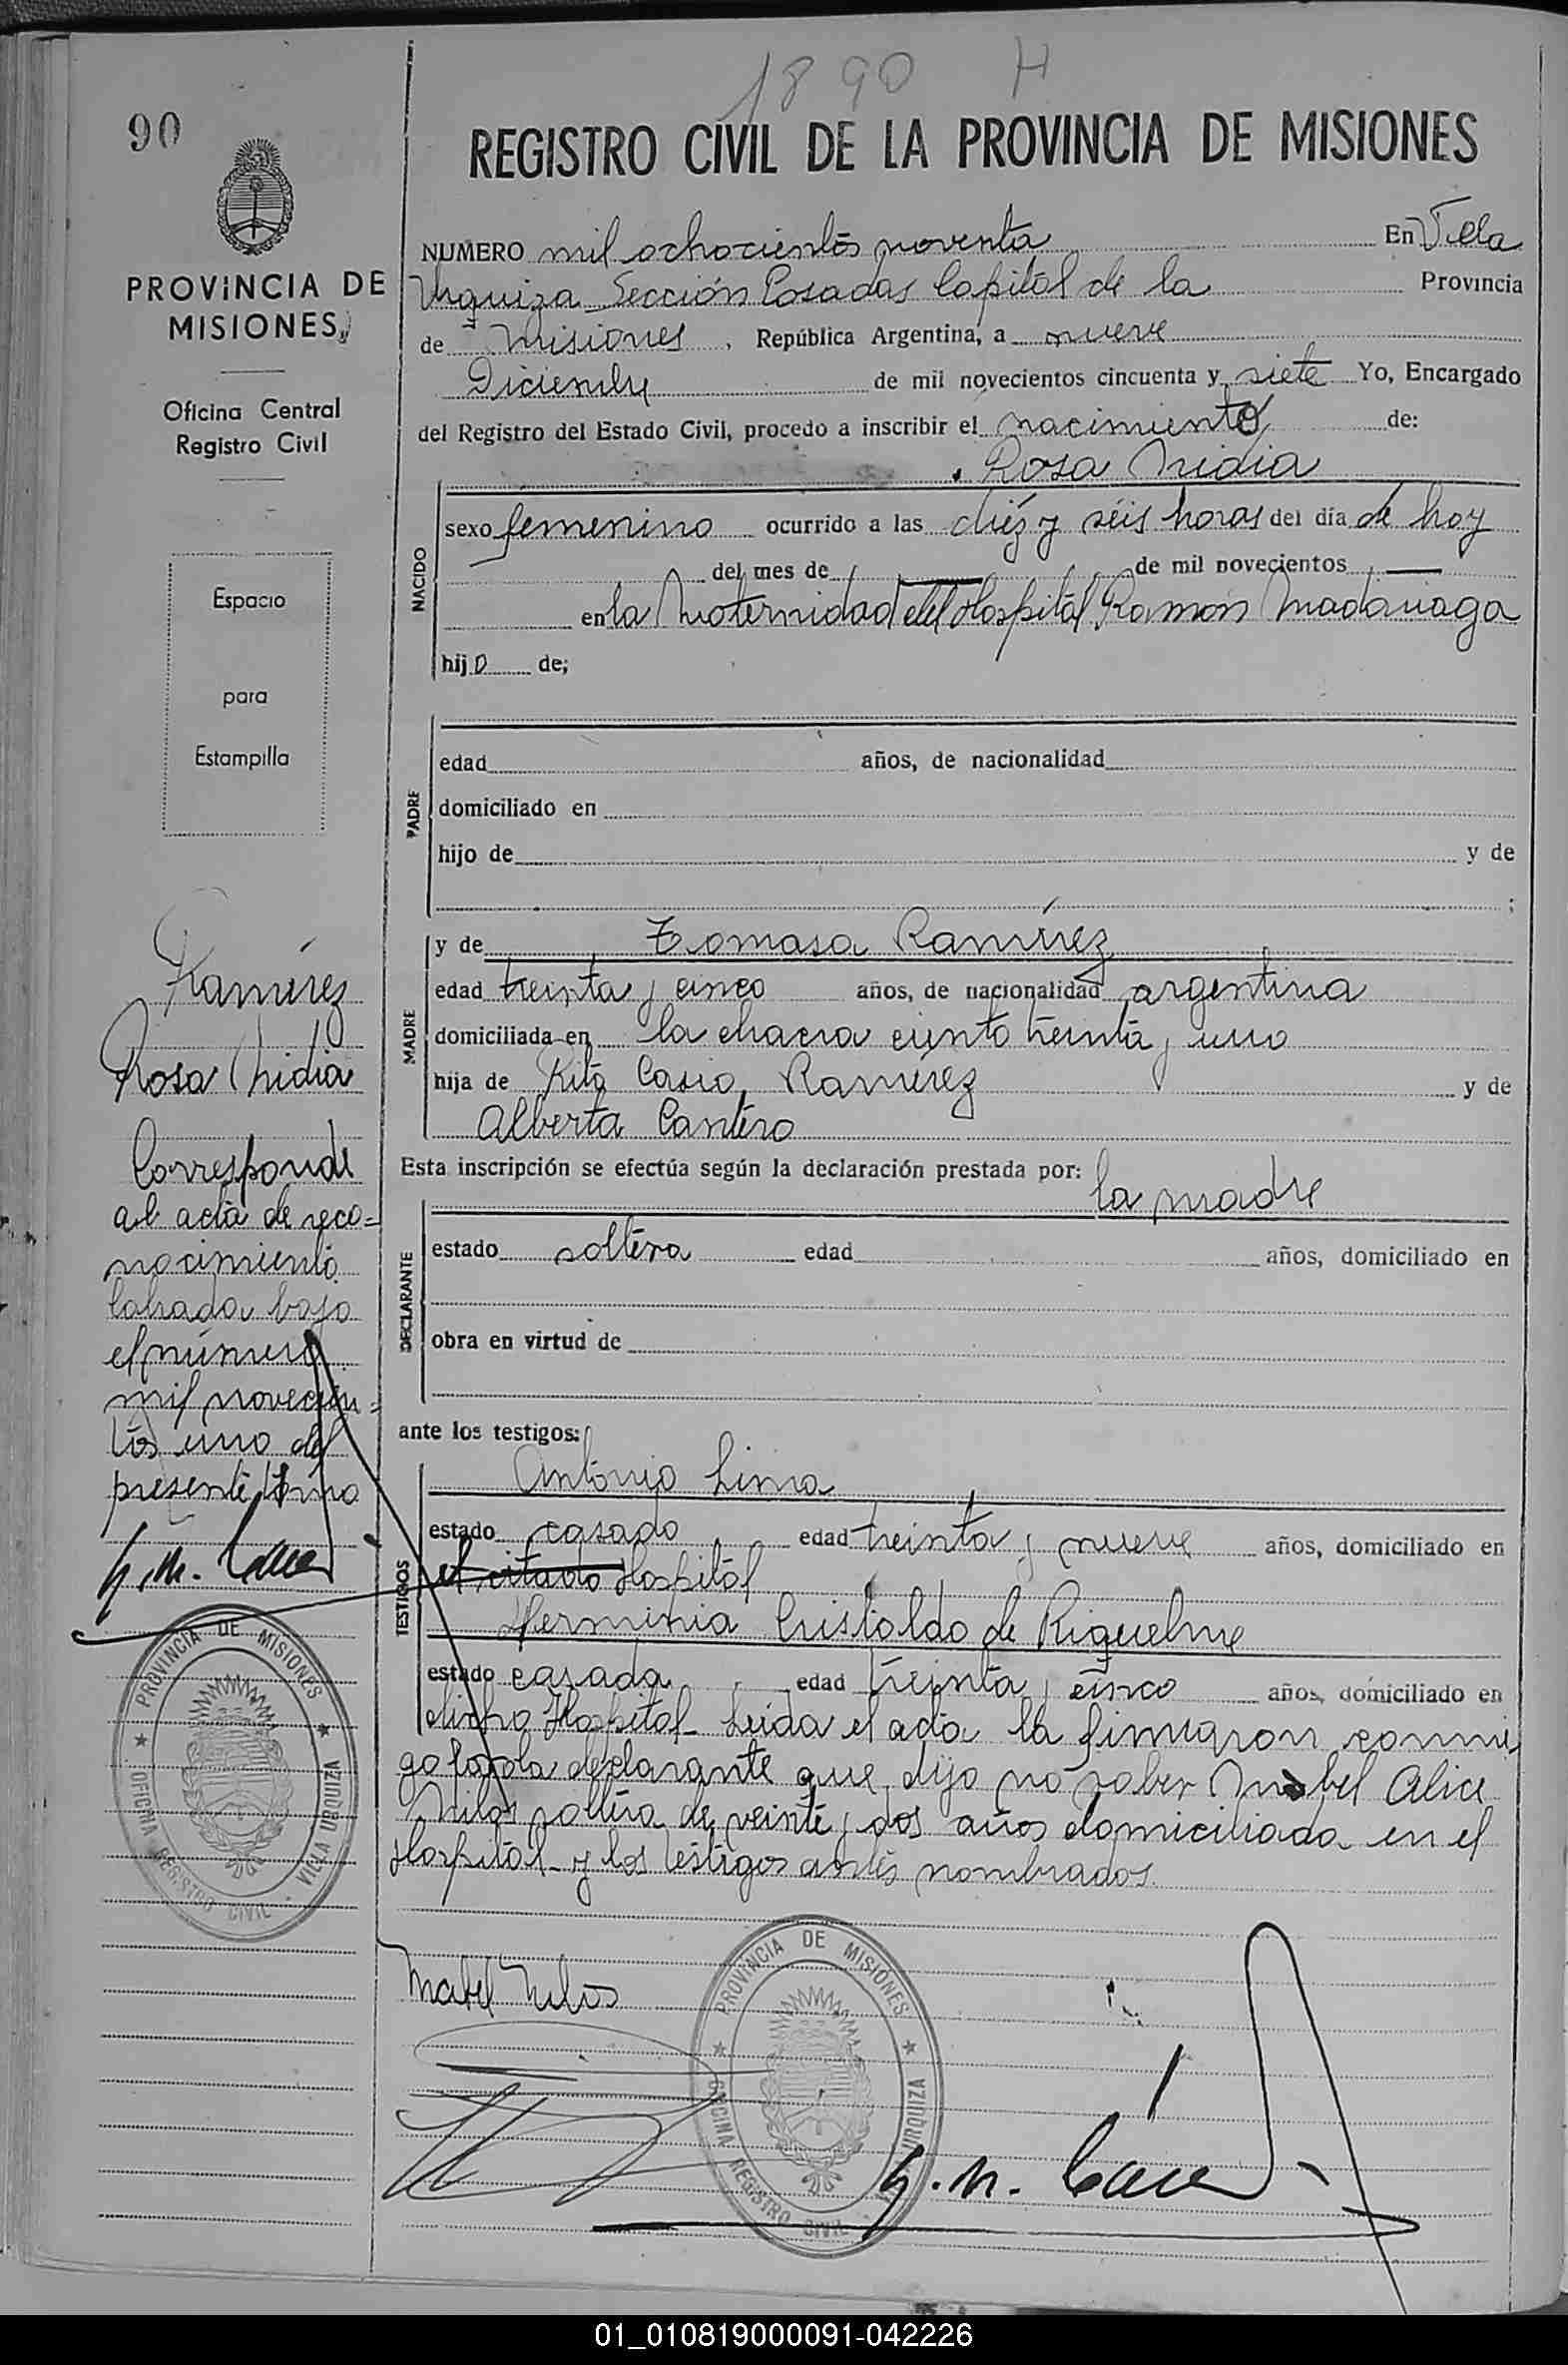 1890 H
90
REGISTRO CIVIL DE LA PROVINCIA DE MISIONES
PROVINCIA DE
MISIONES
Oficina Central
Registro Civil
Espacio
para
Estampilla
NUMERO mil ochocientos noventa En Villa
Urquiza Sección Posadas Capital de la Provincia
de Misiones, República Argentina, a nueve
Diciembre de mil novecientos cincuenta y siete Yo, Encargado
del Registro del Estado Civil, procedo a inscribir el nacimiento de:
Rosa Nidia
NACIDO
sexo femenino ocurrido a las diéz y séis horas del día de hoy
del mes de de mil novecientos
en la Maternidad del Hospital Ramón Madariaga
hij de;
PADRE
edad años, de nacionalidad
domiciliado en
hijo de y de
;
MADRE
y de Tomasa Ramírez
edad treinta y cinco años, de nacionalidad argentina
domiciliada en la chacra ciento treinta y uno
hija de Rita Ramírez y de
Alberta Cantero
Esta inscripción se efectúa según la declaración prestada por: la madre
DECLARANTE
estado soltera edad años, domiciliado en
obra en virtud de
ante los testigos:
TESTIGOS
Antonio Lima
estado casado edad treinta y nueve años, domiciliado en
el citado Hospital
Herminia Cristaldo de Riquelme
estado casada edad treinta y cinco años, domiciliado en
dicho Hospital - Leida el acta la firmaron conmi
go la declarante que dijo no saber Mabel Alice
soltera de veinte y dos años domiciliada en el
Hospital - y los testigos antes nombrados.
Ramírez
Rosa Nidia
Corresponde
al acta de reco=
nocimiento
labrada bajo
el número
mil novecien=
tos uno del
presente tomo
PROVINCIA DE MISIONES
OFICINA REGISTRO CIVIL
VILLA URQUIZA
Mabel
PROVINCIA DE MISIONES
OFICINA REGISTRO CIVIL
URQUIZA
01_010819000091-042226